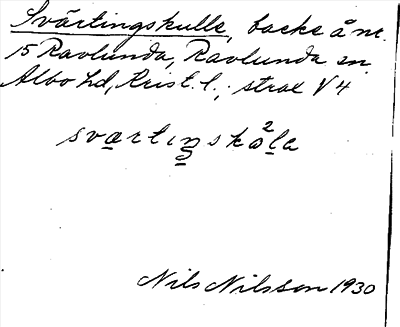 Svärtingskulle, backe å nr.
15 Ravlunda, Ravlunda sn.
Albo hd, Krist. l.; strax V 4
svartiŋskola
Nils Nilsson 1930